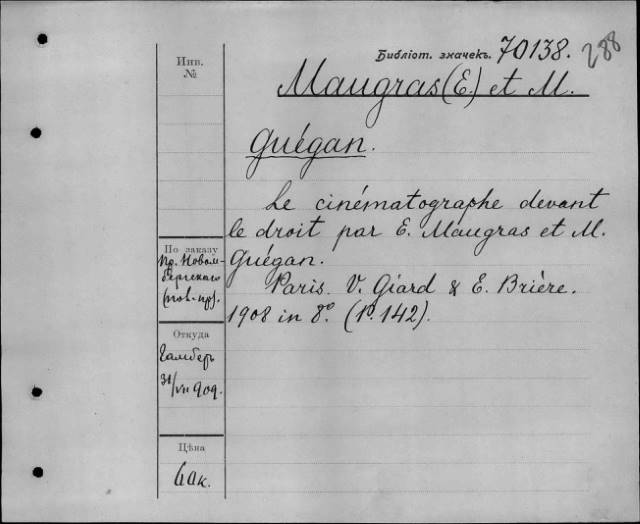 Библіот. значекъ. 70138. 288
Инв.
№
Maugras (E.) et M.
Guégan.
Le cinématographe devant
le droit par E. Maugras et M.
Guégan.
Paris. V. Giard & E. Brière.
1908 in 8º. (P. 142).
По заказу
пр. Новом-
бергскаго
Откуда
31/VII 909.
Цѣна